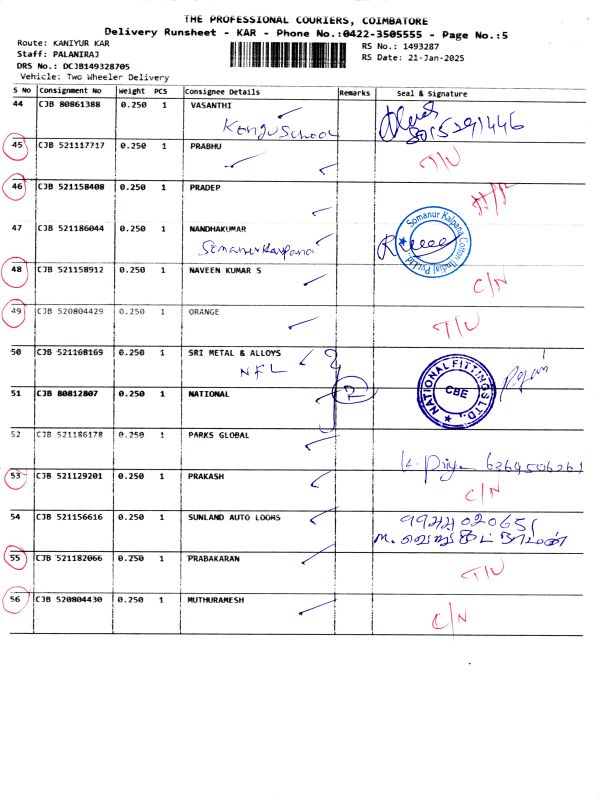 THE PROFESSIONAL COURIERS, COIMBATORE
Delivery Runsheet - KAR - Phone No.:0422-3505555 - Page No.:5
Route: KANIYUR KAR
RS No.: 1493287
Staff: PALANIRAJ
RS Date: 21-Jan-2025
DRS No.: DCJB149328705
Vehicle: Two Wheeler Delivery
S No Consignment No Weight PCS Consignee Details Remarks Seal & Signature
44 CJB 80861388 0.250 1 VASANTHI
Kongu School
45 CJB 521117717 0.250 1 PRABHU T/U
46 CJB 521158408 0.250 1 PRADEP
47 CJB 521186044 0.250 1 NANDHAKUMAR
Somanur Kalpana
Somanur Kalpana Cotton (India) Pvt Ltd
48 CJB 521158912 0.250 1 NAVEEN KUMAR S C/N
49 CJB 520804429 0.250 1 ORANGE T/U
50 CJB 521168169 0.250 1 SRI METAL & ALLOYS
NFL
NATIONAL FITTINGS LTD. CBE
51 CJB 80812807 0.250 1 NATIONAL R
52 CJB 521186178 0.250 1 PARKS GLOBAL
K. Priya 6369506261
53 CJB 521129201 0.250 1 PRAKASH C/N
54 CJB 521156616 0.250 1 SUNLAND AUTO LOOMS
55 CJB 521182066 0.250 1 PRABAKARAN T/U
56 CJB 520804430 0.250 1 MUTHURAMESH C/N